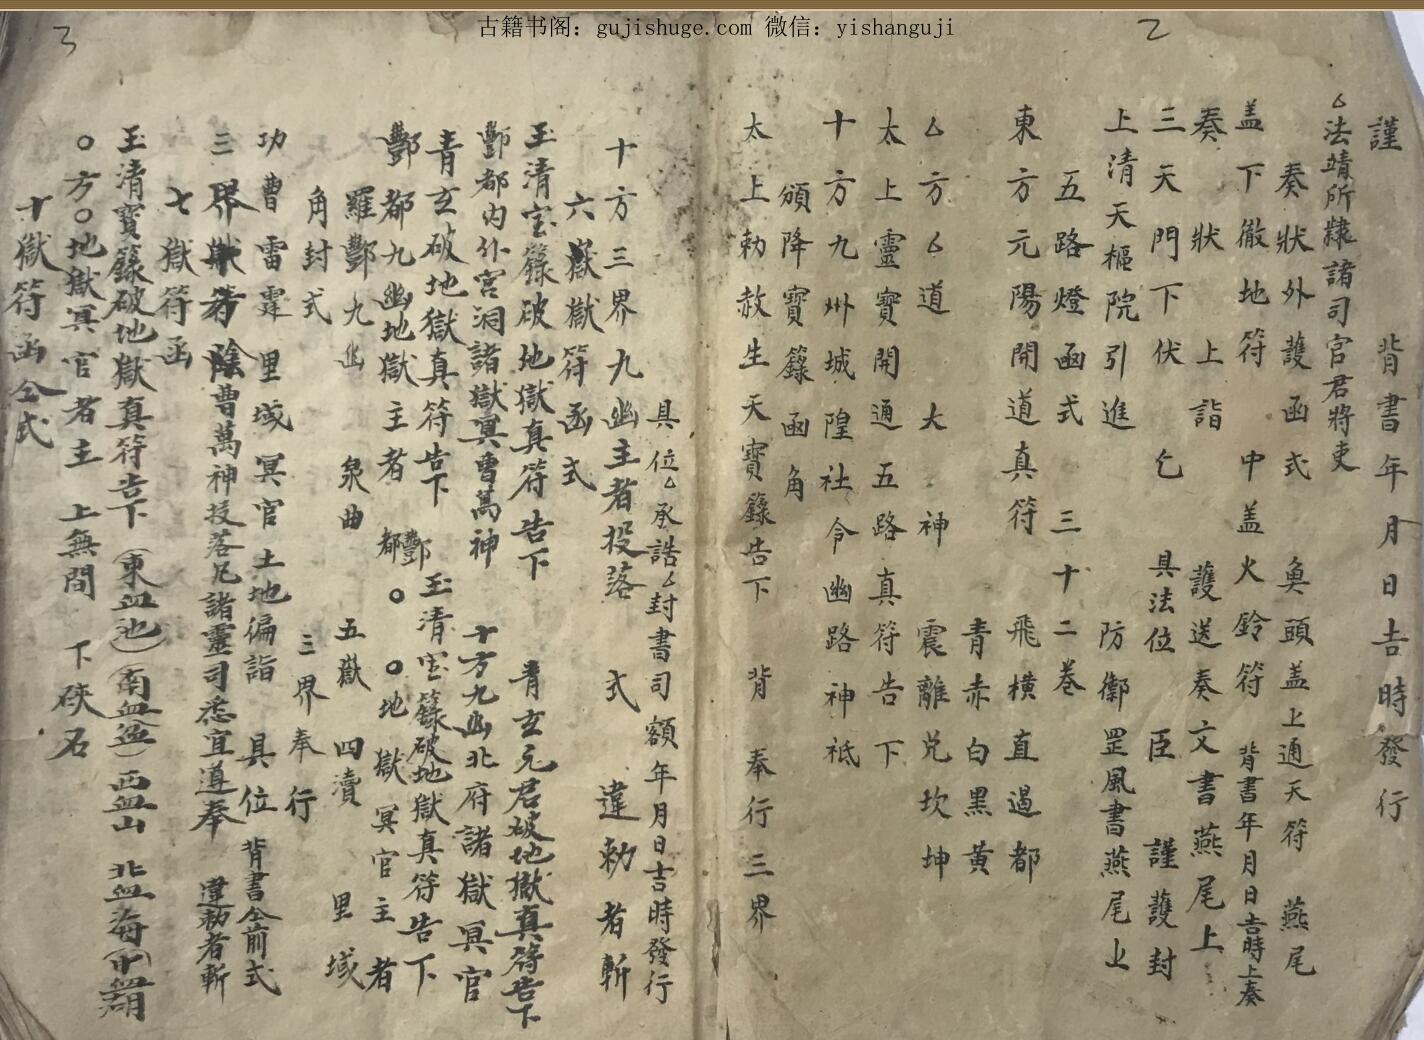 古籍书阁：gujishuge.com 微信：yishanguji
2
謹　背書年月日吉時發行
厶法靖所隸諸司官君將吏
奏狀外護函式　魚頭盖上通天符　燕尾
盖下徹地符　中盖火鈴符　背書年月日吉時上奏
奏狀上詣　護送奏文書燕尾上
三天門下伏乞　具法位　臣　謹護封
上清天樞院引進　防衛罡風書燕尾上
五路燈函式　三十二卷
東方元陽開道真符　飛橫直過都
青赤白黑黃
厶方厶道大神　震離兑坎坤
太上靈寶開通五路真符告下
十方九州城隍社令幽路神祗
頒降寶籙函角
太上勅赦生天寶籙告下　背　奉行三界
3
具位厶承誥厶封書司額年月日吉時發行
十方三界九幽主者投落　式　違勅者斬
六嶽獄符函式
玉清宝籙破地獄真符告下　青玄元君破地獄真符告下
酆都内外宮洞諸獄冥曹萬神　十方九幽北府諸獄冥官
青玄破地獄真符告下　玉清宝籙破地獄真符告下
酆都九幽地獄主者　酆都　〇〇地獄冥官主者
羅酆九幽　泉曲　五嶽　四瀆　里域
角封式　三界奉行
功曹雷霆里域冥官土地偏詣　具位　背書仝前式
三界獄符　陰曹萬神投落凡諸靈司悉宜遵奉　違勅者斬
七獄符函
玉清寳籙破地獄真符告下（東血池）（南血盆）西血山　北血海（中血湖
〇方〇地獄冥官者主　上無間　下硤石
十獄符函仝式